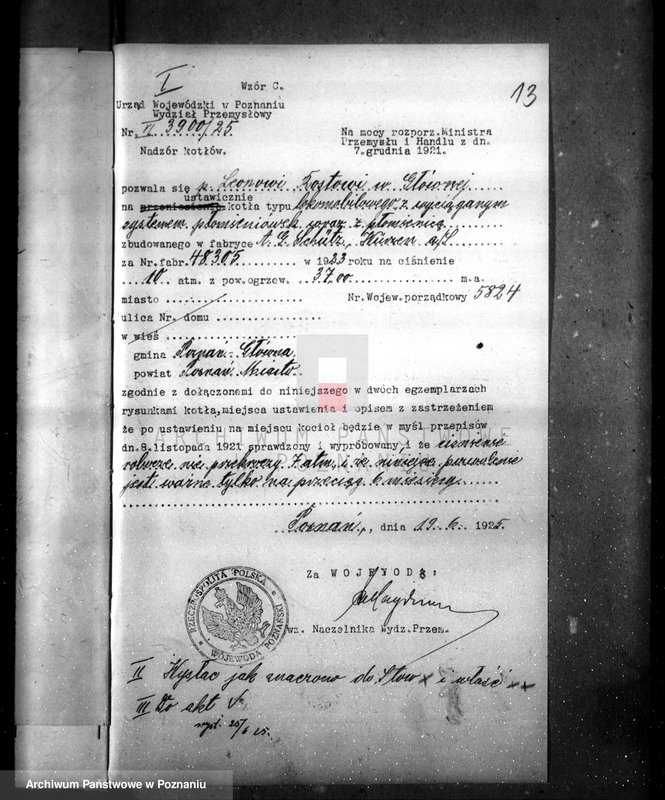 I
Wzór C.
13
Urząd Wojewódzki w Poznaniu
Wydział Przemysłowy
Nr. VI 3900/25.
Nadzór kotłów.
Na mocy rozporz. Ministra
Przemysłu i Handlu z dn.
7. grudnia 1921.
pozwala się p. Leonowi Kostowi w Głównej
ustawienie
na przeniesienie kotła typu lokomobilowego, z wyciąganym
systemem płomieniówek wraz z płomienicą
zbudowanego w fabryce A. L. Schütz, Wurzen a/S
za Nr. fabr. 48305 w 1923 roku na ciśnienie
10 atm. z pow. ogrzew. 37.00 m.a.
miasto Nr. Wojew. porządkowy 5824
ulica Nr. domu
w wieś
gmina Poznań - Główna
powiat Poznań Miasto
zgodnie z dołączonemi do niniejszego w dwóch egzemplarzach
rysunkami kotła, miejsca ustawienia i opisem z zastrzeżeniem
że po ustawieniu na miejscu kocioł będzie w myśl przepisów
dn. 8. listopada 1921 sprawdzony i wypróbowany i że ciśnienie
robocze nie przekroczy 7 atm. i że niniejsze pozwolenie
jest ważne tylko na przeciąg 6 miesięcy.
Poznań, dnia 19. 6. 1925.
Za WOJEWODĘ:
wz. Naczelnika Wydz. Przem.
RZECZPOSPOLITA POLSKA
WOJEWODA POZNAŃSKI
II Wysłać jak znaczono do Stow x i właść xx
III Do akt
wysł. 25/6 25.
ARCHIWUM PAŃSTWOWE
W POZNANIU
Archiwum Państwowe w Poznaniu